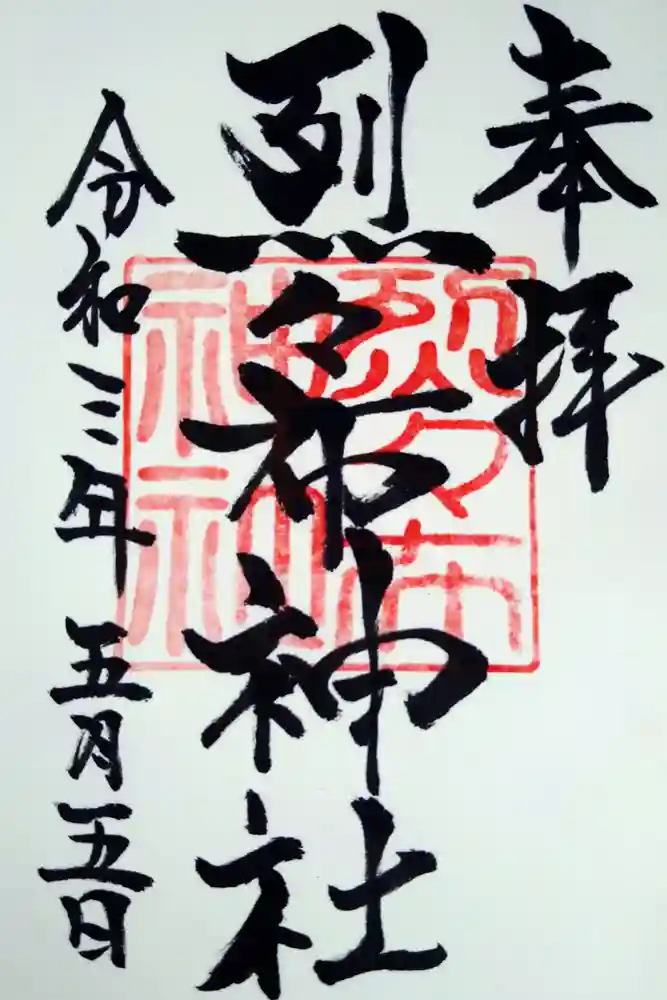 奉拝
烈々布神社
烈々布
神社
令和三年五月五日